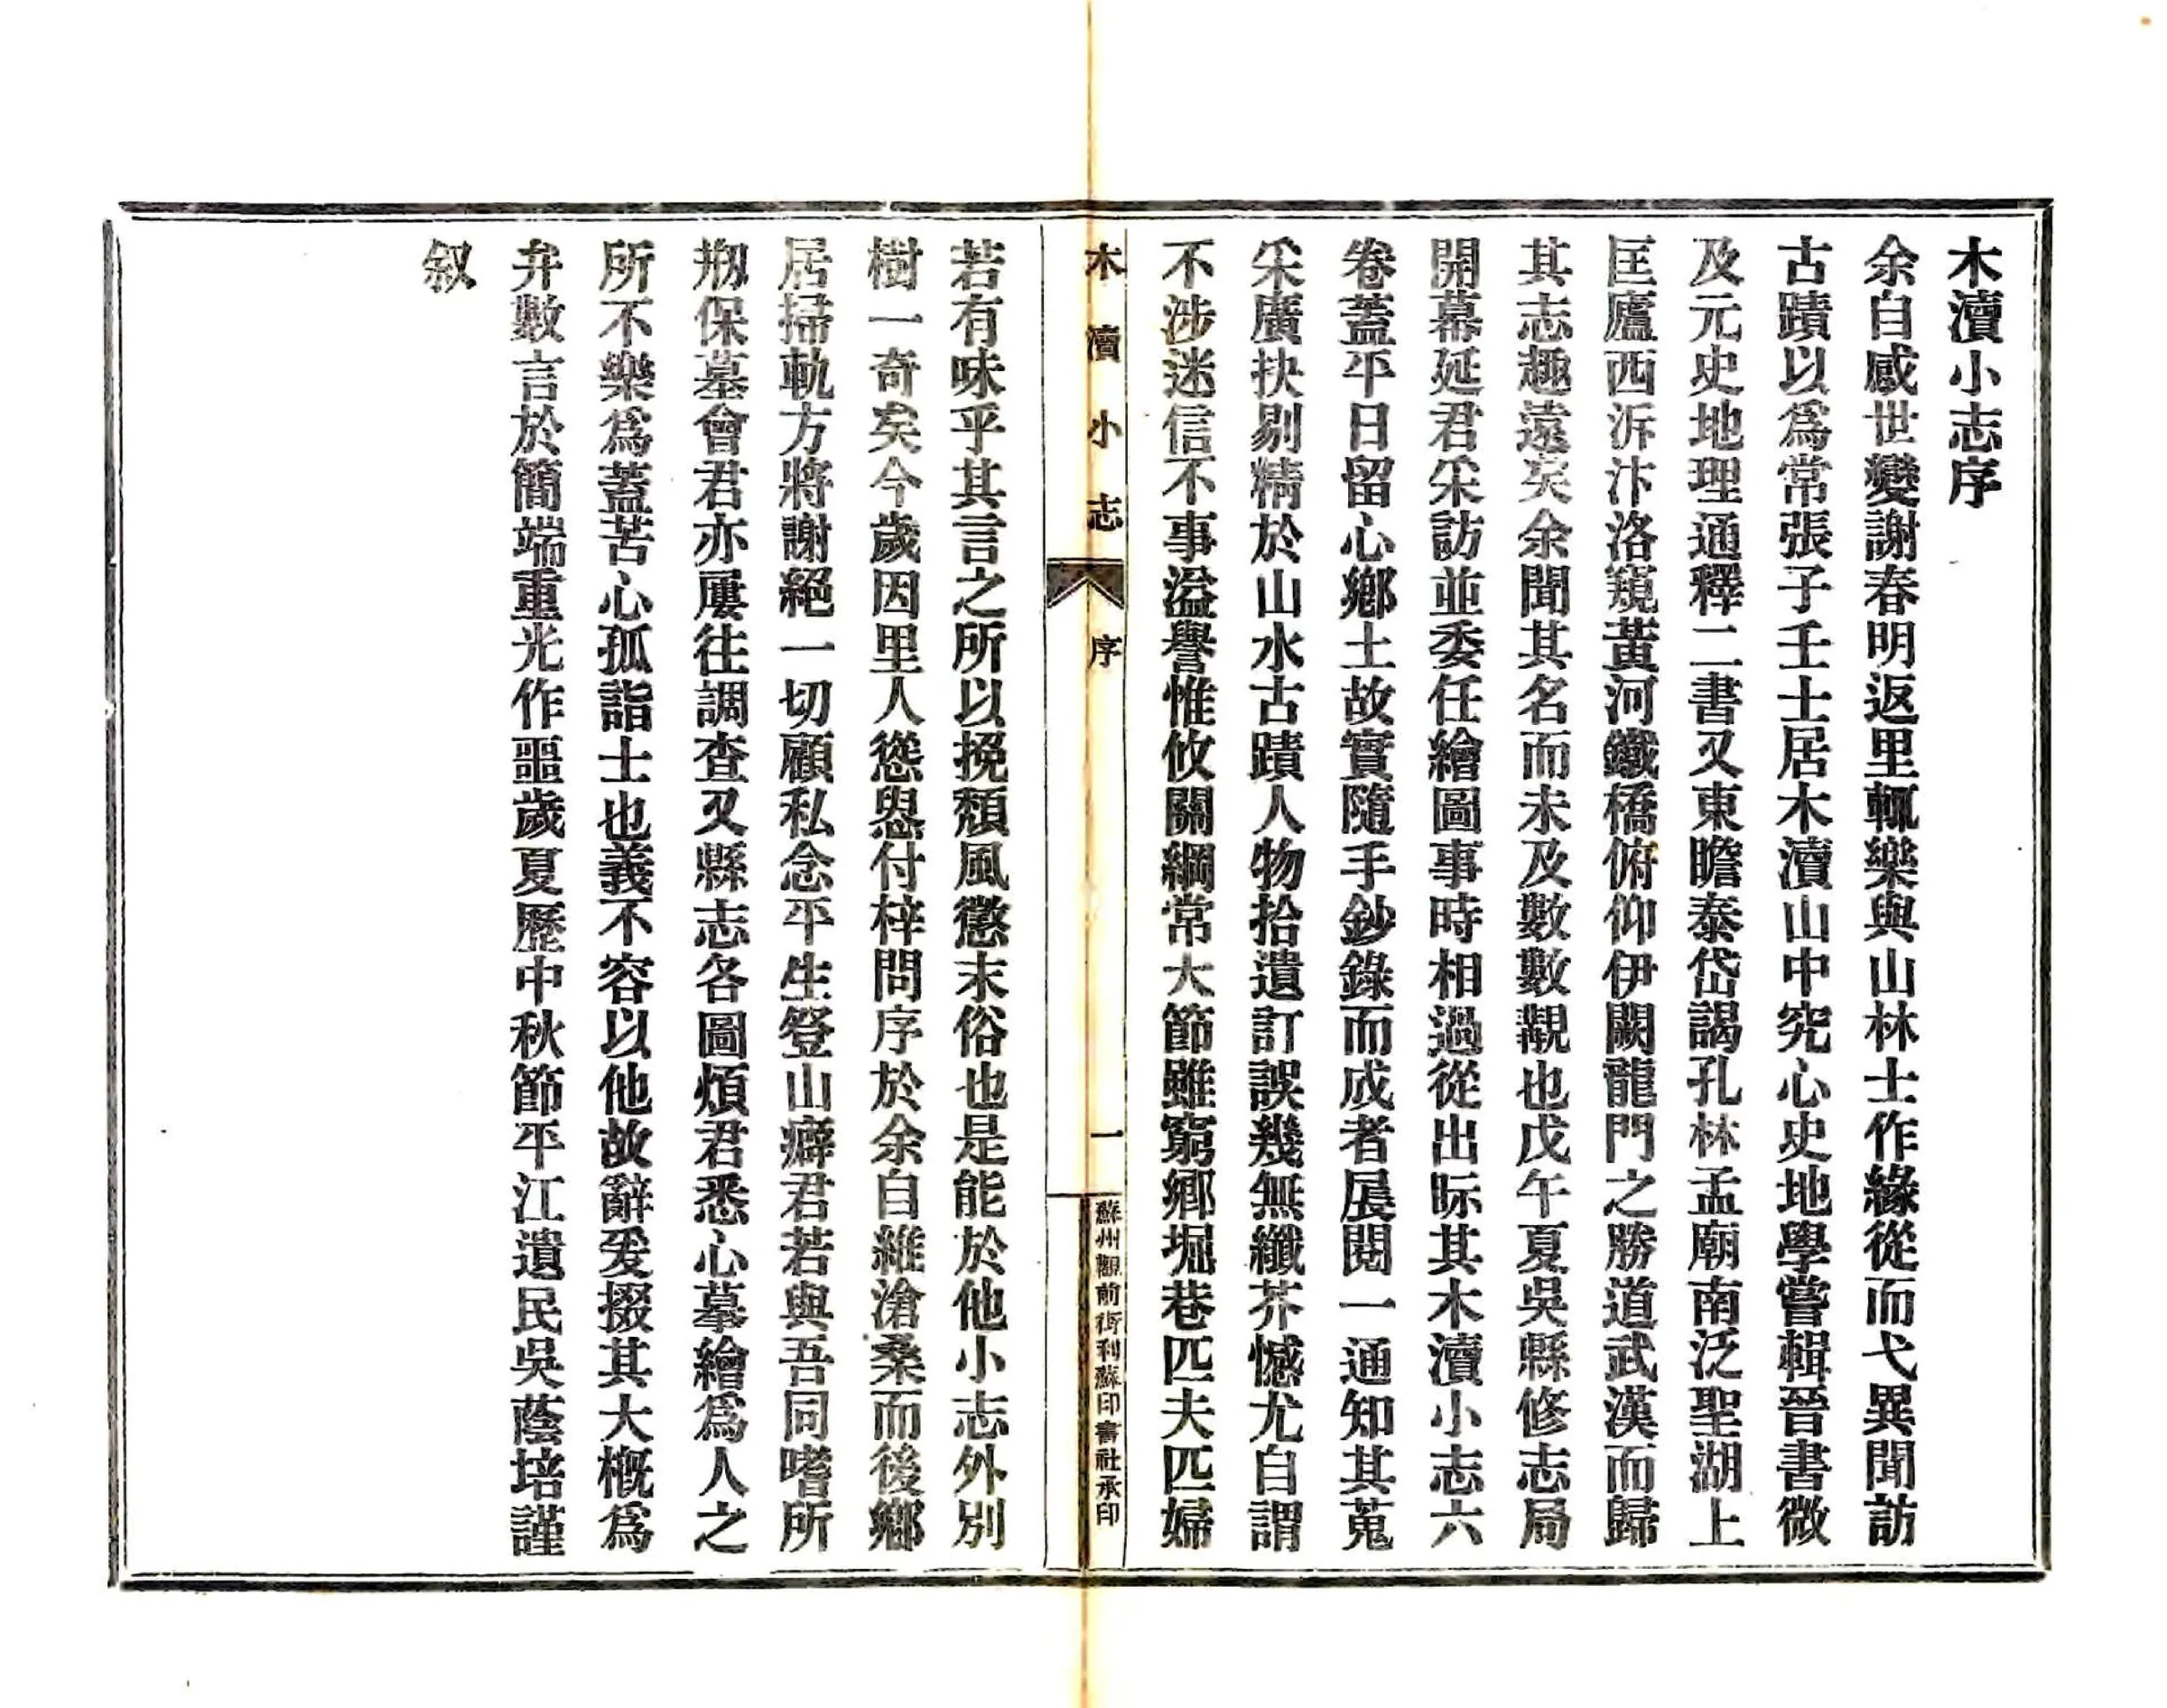 木瀆小志序
余自感世變謝春明返里輒樂與山林士作緣從而弋異聞訪
古蹟以爲常張子壬士居木瀆山中究心史地學嘗輯晉書微
及元史地理通釋二書又東瞻泰岱謁孔林孟廟南泛聖湖上
匡廬西泝汴洛窺黃河鐵橋俯仰伊闕龍門之勝道武漢而歸
其志趣遠矣余聞其名而未及數數覯也戊午夏吳縣修志局
開幕延君采訪並委任繪圖事時相過從出眎其木瀆小志六
卷蓋平日留心鄉土故實隨手鈔錄而成者展閱一通知其蒐
采廣抉剔精於山水古蹟人物拾遺訂誤幾無纖芥憾尤自謂
不涉迷信不事溢譽惟攸關綱常大節雖窮鄉堀巷匹夫匹婦
木瀆小志 序 一 蘇州觀前街利蘇印書社承印
若有味乎其言之所以挽頽風懲末俗也是能於他小志外別
樹一奇矣今歲因里人慫恿付梓問序於余自維滄桑而後鄉
居掃軌方將謝絕一切顧私念平生登山癖君若與吾同嗜所
刱保墓會君亦屢往調查又縣志各圖煩君悉心摹繪爲人之
所不樂爲蓋苦心孤詣士也義不容以他故辭爰掇其大概爲
弁數言於簡端重光作噩歲夏歷中秋節平江遺民吳蔭培謹
叙